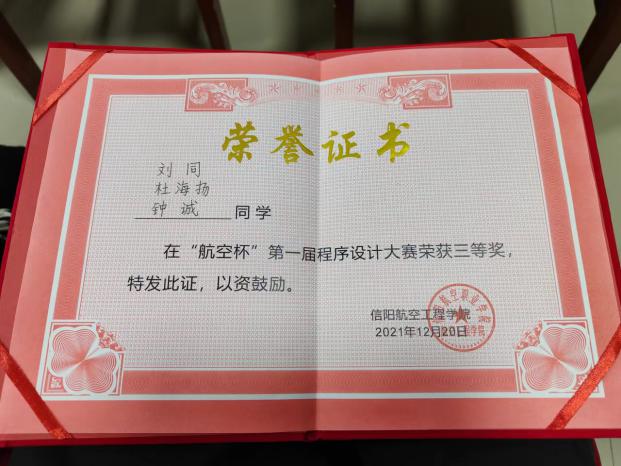 荣誉证书
刘同
杜海扬
钟诚同学
在“航空杯”第一届程序设计大赛荣获三等奖，
特发此证，以资鼓励。
信阳航空工程学院
2021年12月20日